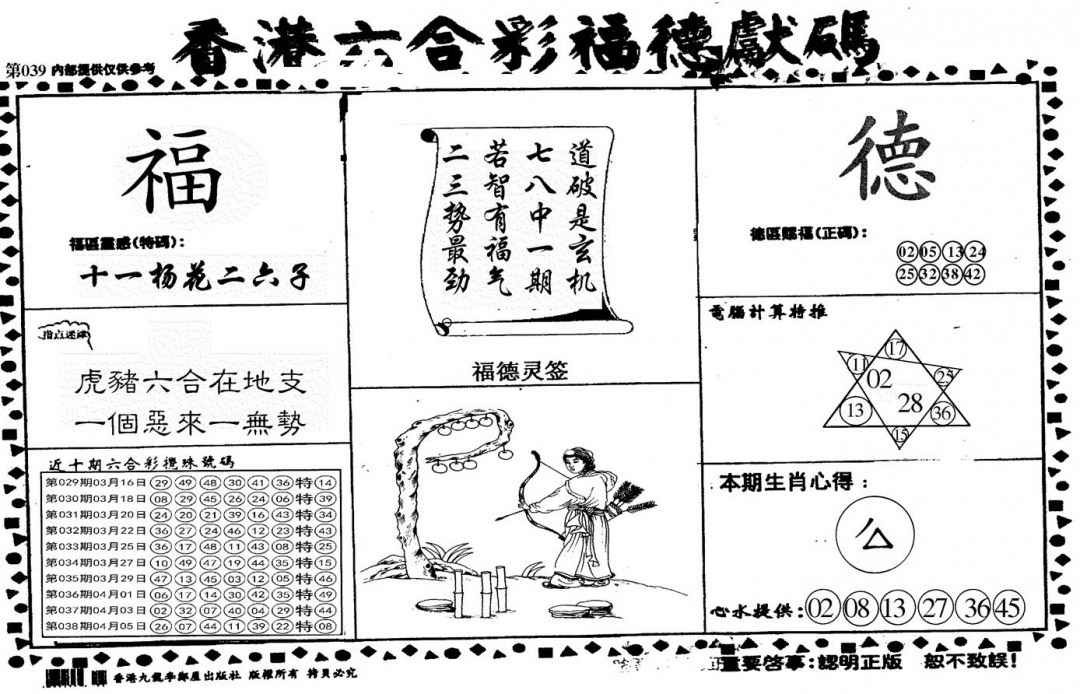 香港六合彩福德獻碼
第039 内部提供仅供参考
福
福區靈感(特碼):
十一杨花二六子
指点迷津
虎豬六合在地支
一個惡來一無勢
近十期六合彩攪珠號碼
第029期03月16日 29 49 48 30 41 36 特 14
第030期03月18日 08 29 45 26 24 06 特 39
第031期03月20日 24 20 21 39 16 43 特 34
第032期03月22日 36 27 24 46 12 23 特 43
第033期03月25日 36 17 48 11 43 08 特 25
第034期03月27日 10 49 47 19 44 35 特 15
第035期03月29日 47 13 45 03 12 05 特 46
第036期04月01日 06 17 14 30 42 35 特 49
第037期04月03日 02 32 07 40 04 29 特 44
第038期04月05日 26 07 44 11 39 22 特 08
道破是玄机
七八中一期
若智有福气
二三勢最劲
福德灵签
德
德區賜福(正碼):
02 05 13 24
25 32 38 42
電腦計算特推
17
11 02 25
13 28 36
15
本期生肖心得:
心水提供: 02 08 13 27 36 45
香港九龍李鄭屋出版社 版權所有 拷貝必究
重要啓事:認明正版 恕不致誤!